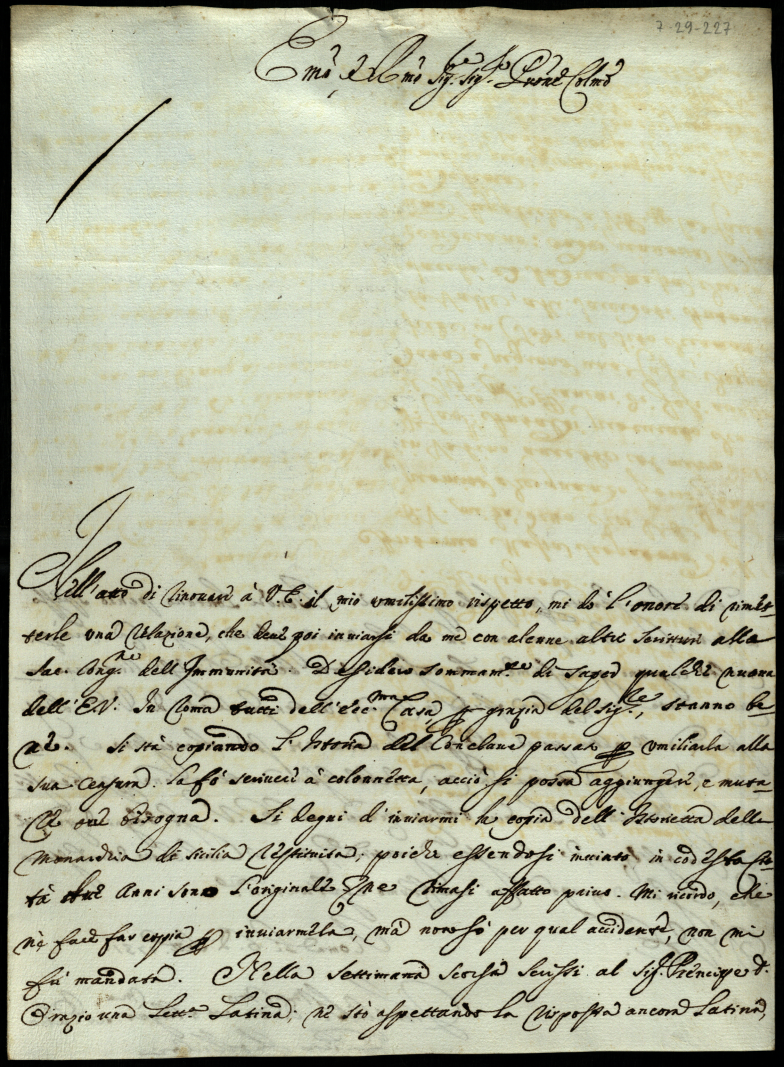 7-29-227
Emo e Rmo Sig.re Sig.re Prone Colmo
Nell'atto di rinovare à V.E. il mio umilissimo rispetto, mi dò l'onore di rimet-
terle una relazione, che deve poi inviarsi da me con alcune altre scritture alla
Sac. Cong.ne dell'Immunità. Desidero sommam.te di saper qualche nuova
dell'E.V. In Roma tutti dell'ecc.ma Casa p grazia del Sig.re, stanno be-
ne. Si stà copiando l'Istoria del Conclave passato p umiliarla alla
sua censura. La fò scrivere à colonnetta, acciò si possa aggiungere, e muta-
re ove bisogna. Si degni d'inviarmi la copia dell'Istorietta della
Monarchia di Sicilia restituita; poiche essendosi inviato in codesta Cit-
tà anni sono l'originale, ne rimasi affatto privo. Mi ricordo, che
ne fece far copia p inviarmela, mà non sò per qual accidente, non mi
fù mandata. Nella settimana scorsa scrissi al Sig. Principe d.
Orazio una Lett.ra Latina; ne stò aspettando la risposta ancora Latina,